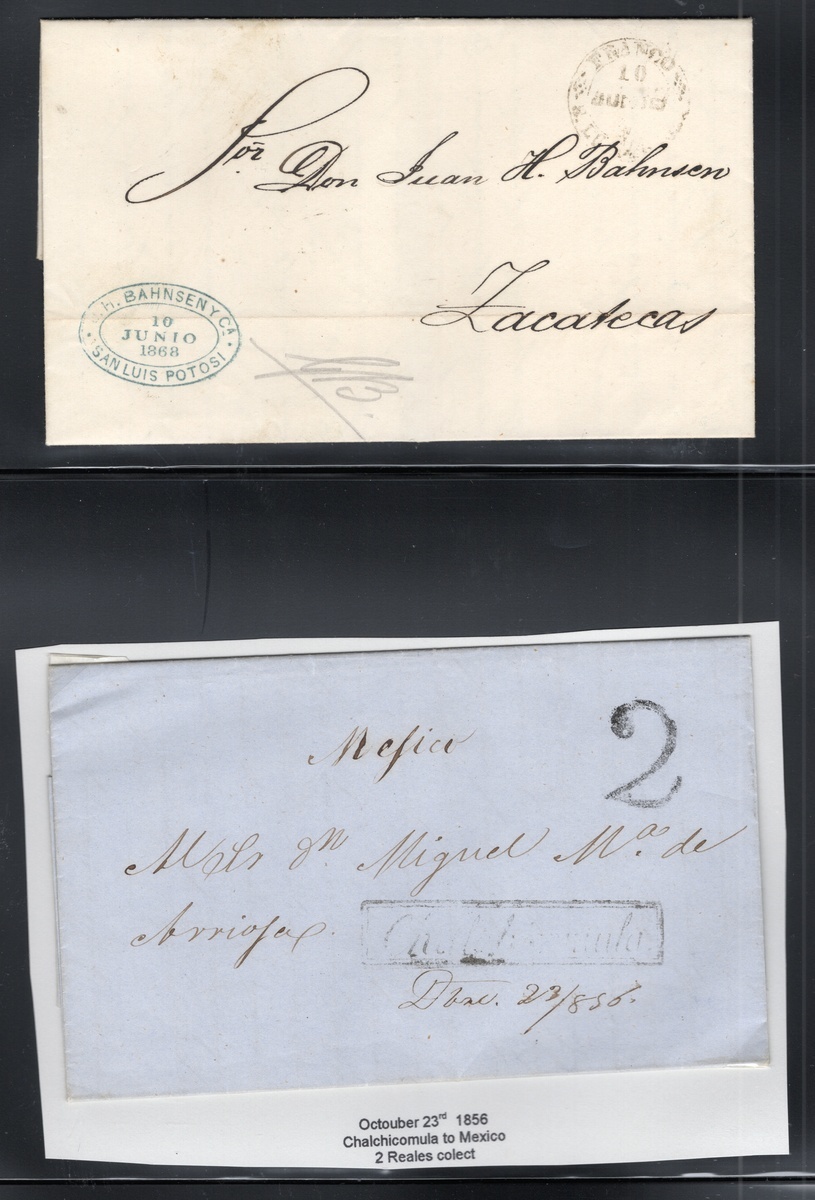 FRANCO
10
JUNIO
Sor. Don Juan H. Bahnsen
Zacatecas
J. H. BAHNSEN Y CA.
10
JUNIO
1868
SAN LUIS POTOSI
2
Mejico
Al Sr Dn Miguel Ma. de
Arrioja.
Chalchicomula
Dbre. 23/856.
Octouber 23rd 1856
Chalchicomula to Mexico
2 Reales colect